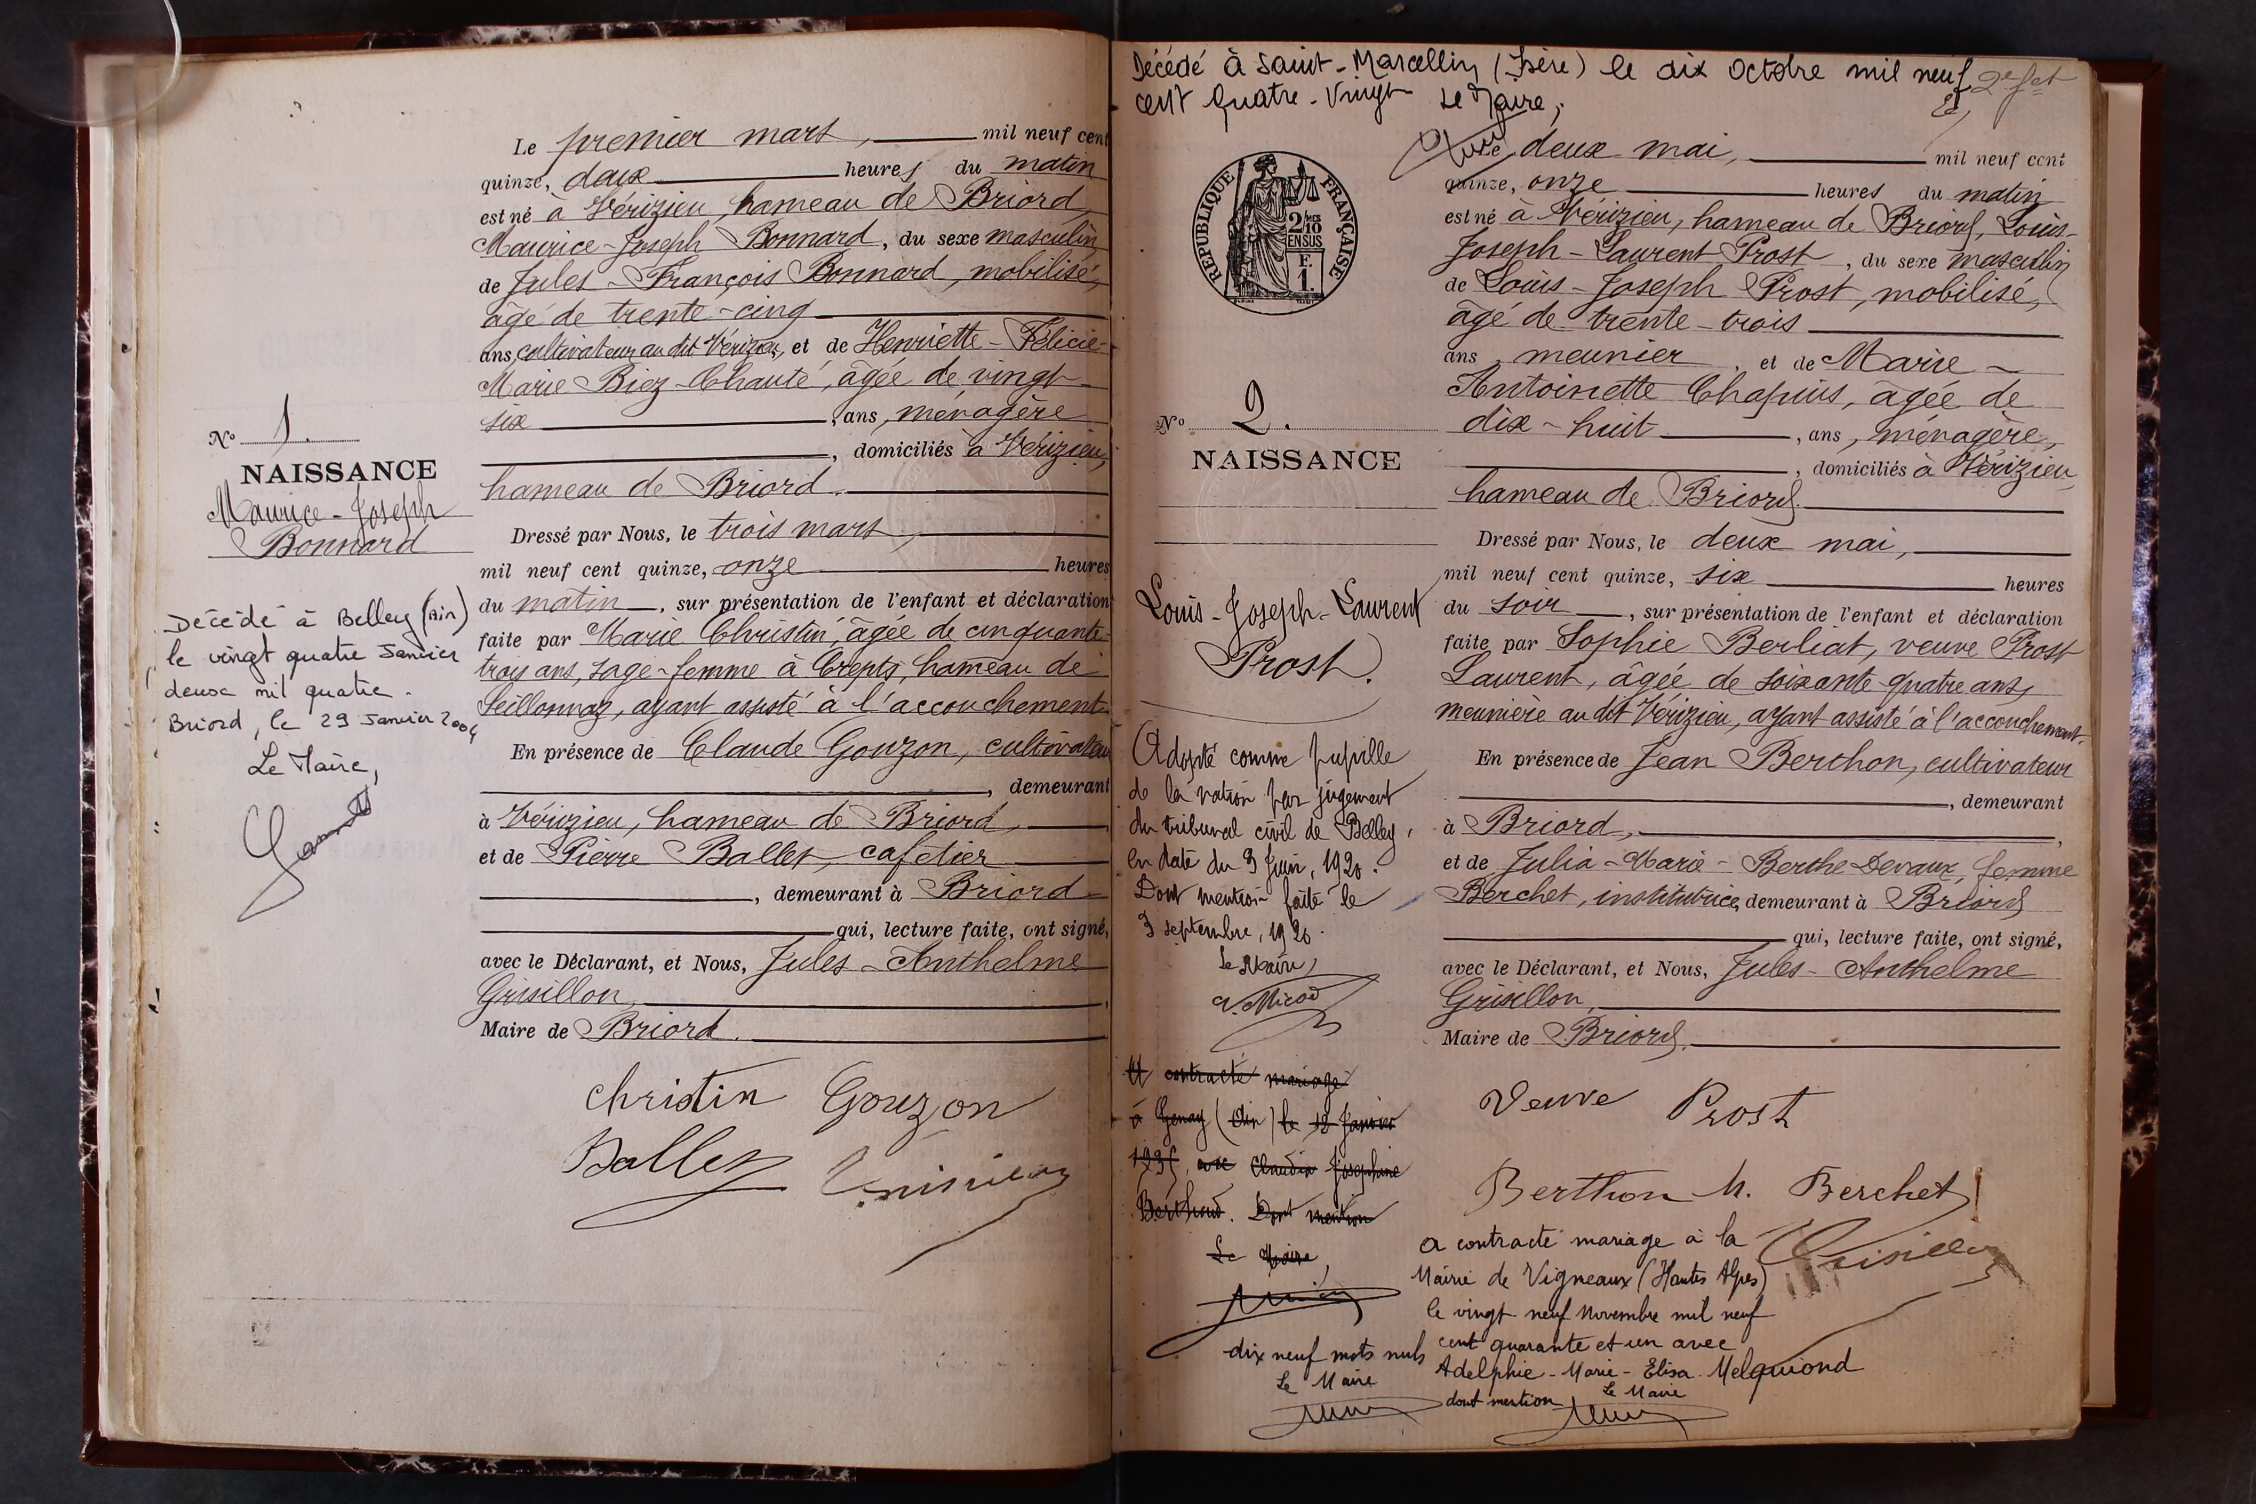 Le premier mars, mil neuf cent
quinze, deux heures du matin
est né à Vérizieu, hameau de Briord
Maurice-Joseph Bonnard, du sexe masculin
de Jules-François Bonnard, mobilisé,
âgé de trente-cinq
ans, cultivateur au dit Vérizieu, et de Henriette-Félicie-
Marie Biez-Chauté, âgée de vingt-
six, ans, ménagère
, domiciliés à Vérizieu,
hameau de Briord.
Dressé par Nous, le trois mars,
mil neuf cent quinze, onze heures
du matin, sur présentation de l'enfant et déclaration
faite par Marie Christin, âgée de cinquante-
trois ans, sage-femme à Crept, hameau de
Seillonnaz, ayant assisté à l'accouchement.
En présence de Claude Gouzon, cultivateur
, demeurant
à Vérizieu, hameau de Briord,
et de Pierre Ballet, cafetier
, demeurant à Briord
qui, lecture faite, ont signé,
avec le Déclarant, et Nous, Jules-Anthelme
Grisillon,
Maire de Briord.
christin Gouzon
Ballet Grisillon
No 1.
NAISSANCE
Maurice-Joseph
Bonnard
Décédé à Belley (Ain)
le vingt quatre Janvier
deux mil quatre.
Briord, le 29 Janvier 2004
Le Maire,
Décédé à Saint-Marcellin (Isère) le dix Octobre mil neuf
cent Quatre-Vingt Le Maire,
2e fet
RÉPUBLIQUE FRANÇAISE
2/10
EN SUS
F.
1.
No 2.
NAISSANCE
Louis-Joseph-Laurent
Prost.
Adopté comme pupille
de la nation par jugement
du tribunal civil de Belley,
en date du 3 Juin, 1920.
Dont mention faite le
3 septembre, 1920.
Le Maire,
A contracté mariage
à Genay (Ain) le 12 Janvier
1935, avec Claudia Josephine
Berthaud. Dont mention
Le Maire,
dix neuf mots nuls
Le Maire
Le deux mai, mil neuf cent
quinze, onze heures du matin
est né à Vérizieu, hameau de Briord, Louis-
Joseph-Laurent Prost, du sexe masculin
de Louis-Joseph Prost, mobilisé,
âgé de trente-trois
ans, meunier, et de Marie-
Antoinette Chapuis, âgée de
dix-huit, ans, ménagère,
, domiciliés à Vérizieu,
hameau de Briord.
Dressé par Nous, le deux mai,
mil neuf cent quinze, six heures
du soir, sur présentation de l'enfant et déclaration
faite par Sophie Berliat, veuve Prost
Laurent, âgée de soixante-quatre ans,
meunière au dit Vérizieu, ayant assisté à l'accouchement.
En présence de Jean Berthon, cultivateur
, demeurant
à Briord,
et de Julia-Marie-Berthe Devaux, femme
Berchet, institutrice, demeurant à Briord
qui, lecture faite, ont signé,
avec le Déclarant, et Nous, Jules-Anthelme
Grisillon,
Maire de Briord.
Veuve Prost
Berthon M. Berchet
Grisillon
a contracté mariage à la
Mairie de Vigneaux (Hautes Alpes)
le vingt neuf novembre mil neuf
cent quarante et un avec
Adelphie-Marie-Elisa Melquiond
dont mention Le Maire